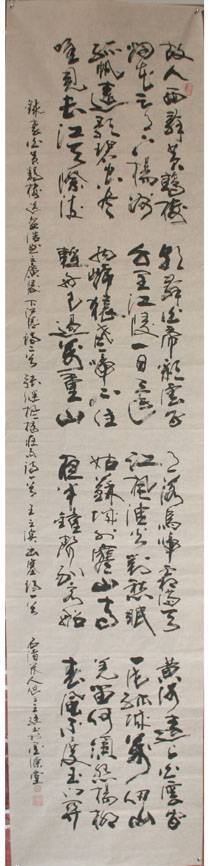 故人西辭黃鶴樓
煙花三月下揚州
孤帆遠影碧空盡
唯見長江天際流
朝辭白帝彩雲間
千里江陵一日還
兩岸猿聲啼不住
輕舟已過萬重山
月落烏啼霜滿天
江楓漁火對愁眠
姑蘇城外寒山寺
夜半鐘聲到客船
黃河遠上白雲間
一片孤城萬仞山
羌笛何須怨楊柳
春風不度玉門關
錄李白黃鶴樓送孟浩然之廣陵下江陵詩二首張繼楓橋夜泊詩一首王之渙出塞詩一首